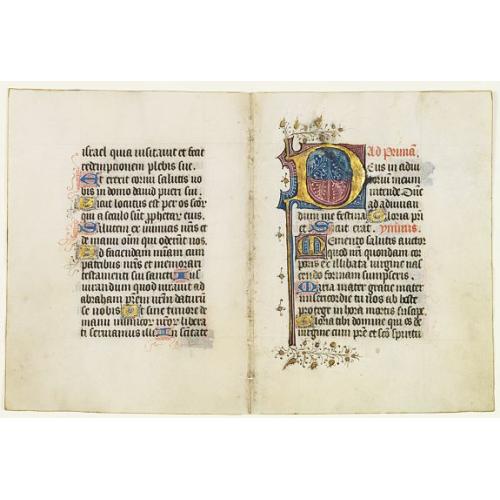 israel quia uisitauit et fecit
redemptionem plebis sue.
Et erexit cornu salutis no
bis in domo dauid pueri sui.
Sicut locutus est per os scõr
qui a seculo sũt prophetar eius.
Salutem ex inimicis nr̃is et
de manu oĩm qui oderũt nos.
Ad faciendam miãm cum
patribus nr̃is et memorari
testamenti sui sancti Ius
iurandum quod iurauit ad
abraham prẽm nr̃m daturũ
se nobis Ut sine timore de
manu inimicor nr̃or libera
ti seruiamus illi In sc̃itate
Ad Primã.
Deus in adiu
toriũ meum
intende Dñe
ad adiuuan
dum me festina Gloria pr̃i
et Sicut erat. ympnus.
Memento salutis auctor
quod nr̃i quondam cor
poris ex illibata uirgine nas
cendo formam sumpseris.
Maria mater gratie mater
misericordie tu nos ab hoste
protege in hora mortis suscipe
Gloria tibi domine qui es de
uirgine cum pr̃e et sc̃o spiritu